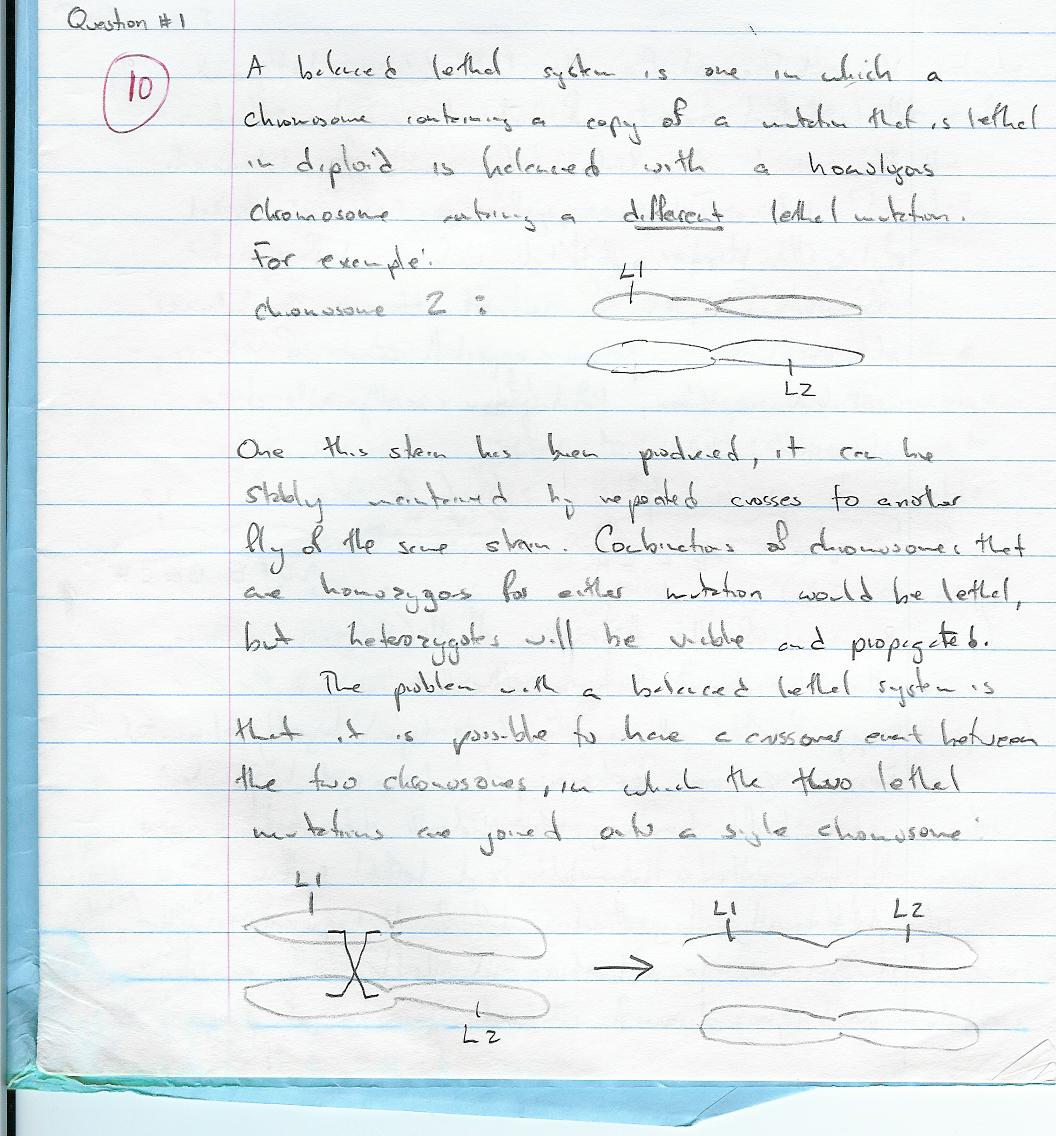 Question #1
10
A balanced lethal system is one in which a
chromosome containing a copy of a mutation that is lethal
in diploid is balanced with a homolygous
chromosome containing a different lethal mutation.
For example:
chromosome 2 :
L1
L2
One this strain has been produced, it can be
stably maintained by repeated crosses to another
fly of the same strain. Combinations of chromosomes that
are homozygous for either mutation would be lethal,
but heterozygotes will be viable and propagated.
The problem with a balanced lethal system is
that it is possible to have a crossover event between
the two chromosomes, in which the two lethal
mutations are joined onto a single chromosome:
L1
L1 L2
L2